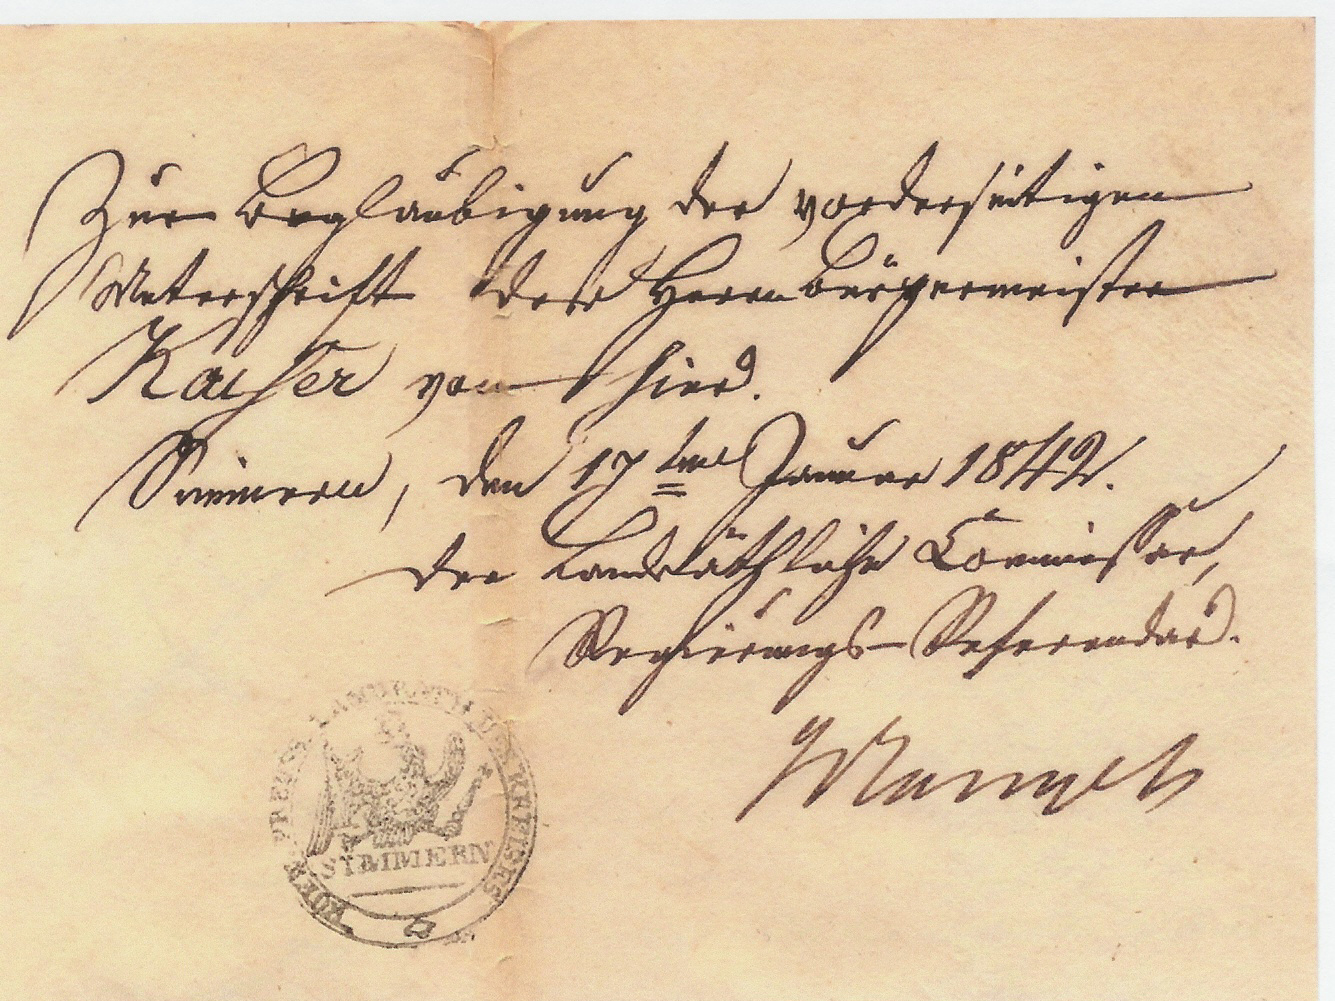 Zur Beglaubigung der vorderseitigen
Unterschrift des Herrn Bürgermeister
Kaiser von hier.
Simmern, den 17ten Januar 1842.
Der Landräthliche Commissar,
Regierungs-Referendar.
KOEN. PREUSS. LANDRATH DES KREISES
SIMMERN